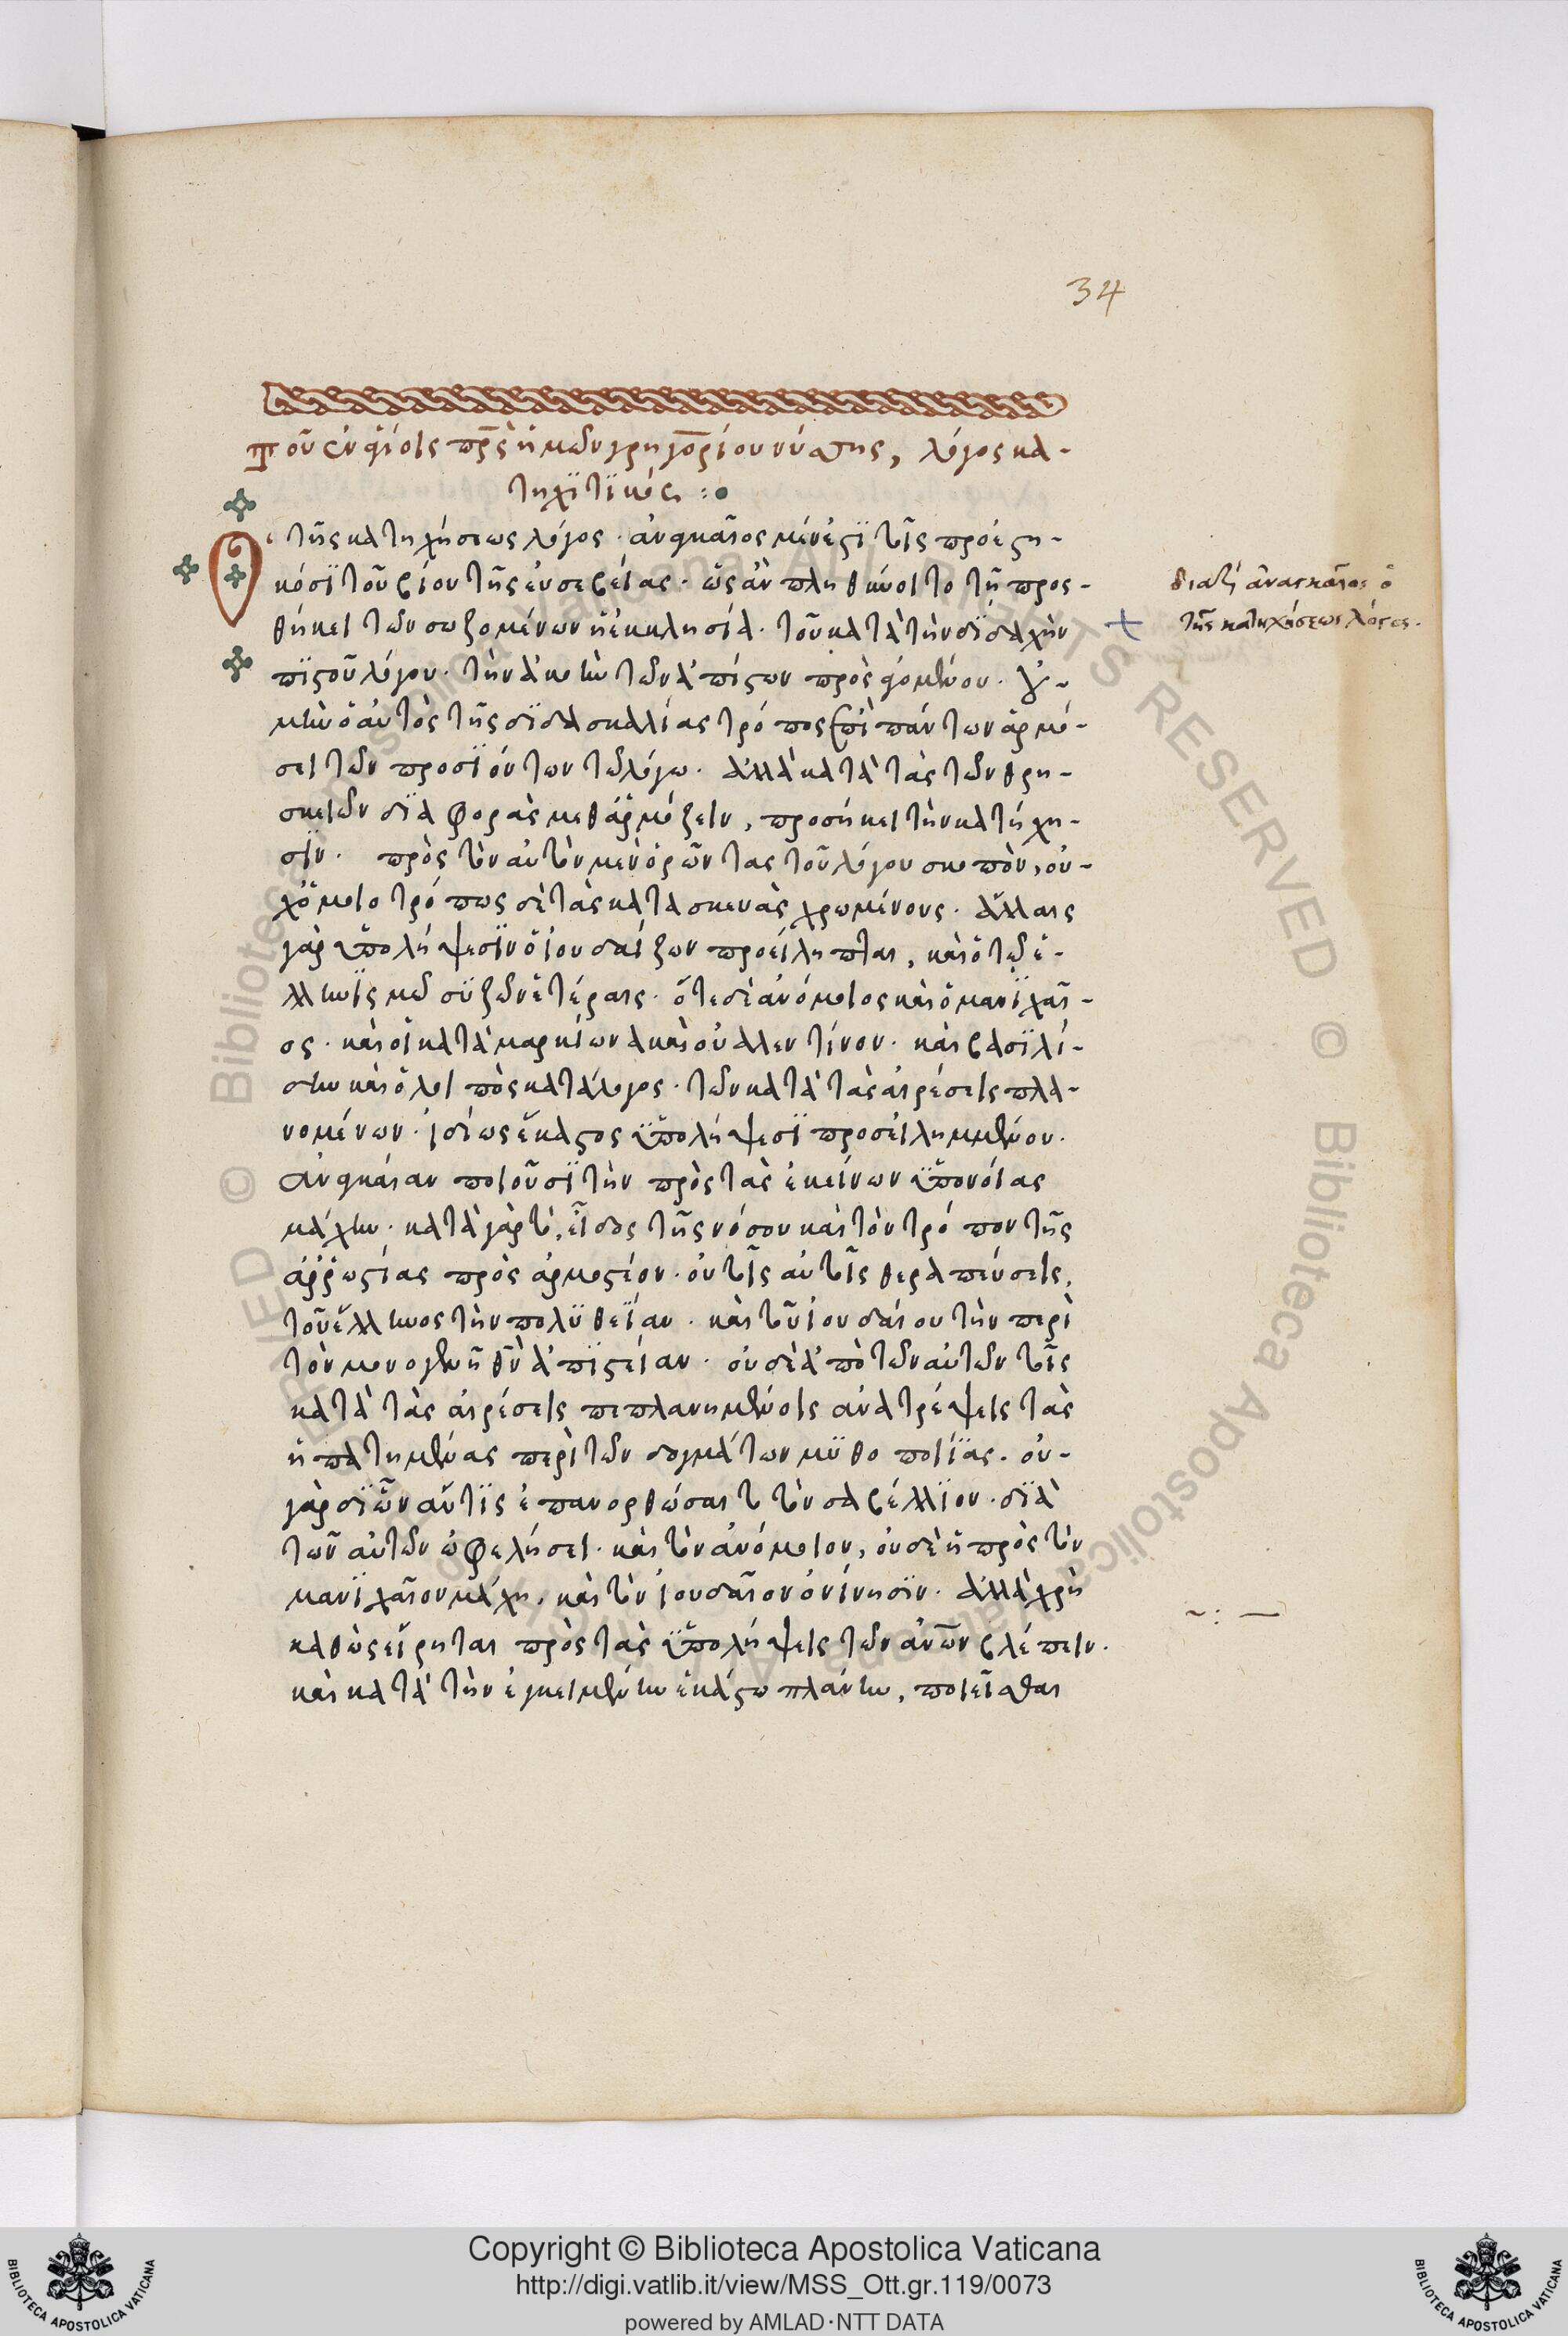 34
Τοῦ ἐν ἁγίοις πρς ἡμῶν γρηγορίου νύσσης, λόγος κα-
τηχϊτϊκός :
Ὁ τῆς κατηχήσεως λόγος · ἀναγκαῖος μέν ἐστϊ τοῖς προεστη-
κόσϊ τοῦ βίου τῆς ἐυσεβείας · ὡς ἂν πληθύνοιτο τῇ προς-
θήκει τῶν σωζομένων ἡ ἐκκλησία · τοῦ κατὰ τὴν δϊδαχὴν
πϊστοῦ λόγου · τὴν ἀκοὴν τῶν ἀπίστων προσαγόμενον ·
μὴν ὁ αὐτὸς τῆς δϊδασκαλίας τρόπος ἐπὶ πάντων ἁρμό-
σει τῶν προσϊόντων τῶ λόγω · ἀλλὰ κατὰ τὰς τῶν θρη-
σκειῶν δϊαφορὰς μεθαρμόζειν, προσήκει τὴν κατήχη-
σϊν · πρὸς τὸν αὐτὸν μὲν ὁρῶντας τοῦ λόγου σκοπὸν, οὐ-
χ ὁμοιοτρόπως δὲ τὰς κατασκευὰς χρωμένους · ἄλλαις
γὰρ ὑπολήψεσϊν ὁ ἰουδαίζων προείληπται, καὶ ὁ τῷ ἑ-
λληνϊσμῶ συζῶν ἑτέραις · ὅτε δὲ ἀνόμοιος καὶ ὁ μανϊχαῖ-
ος · καὶ οἱ κατὰ μαρκίωνα καὶ οὐαλεντίνον · καὶ βασϊλί-
δην καὶ ὁ λοιπὸς κατάλογος · τῶν κατὰ τὰς αἱρέσεις πλα-
νομένων · ἰδίως ἕκαστος ὑπολήψεσϊ προσειλημμένον ·
ἀναγκαίαν ποιοῦσϊ τὴν πρὸς τὰς ἐκείνων ὑπονοίας
μάχην · κατὰ γὰρ τὸ, εἶδος τῆς νόσου καὶ τὸν τρόπον τῆς
ἀῤῥωστίας προσαρμοστέον · οὐ τοῖς αὐτοῖς θεραπεύσεις,
τοῦ ἕλληνος τὴν πολϋθεΐαν · καὶ τοῦ ἰουδαίου τὴν περὶ
τὸν μονογενῆ θν ἀπϊστείαν · οὐδὲ ἀπὸ τῶν αὐτῶν τοῖς
κατὰ τὰς αἱρέσεις πεπλανημένοις ἀνατρέψεις τὰς
ἠπατημένας περὶ τῶν δογμάτων μϋθοποιΐας · οὐ-
γὰρ δϊ ὧν αὔτϊς ἐπανορθώσαιτο τὸν σαβέλλϊον · δϊὰ
τῶν αὐτῶν ὠφελήσει · καὶ τὸν ἀνόμοιον, οὐδὲ ἡ πρὸς τὸν
μανϊχαῖον μάχη, καὶ τὸν ἰουδαῖον ὀνίνησϊν · ἀλλὰ χρὴ
καθὼς εἴρηται πρὸς τὰς ὑπολήψεις τῶν ἀνων βλέπειν ·
καὶ κατὰ τὴν ἐγκειμένην ἑκάστω πλάνην, ποιεῖσθαι
διατί ἀναγκαῖος ὁ
τῆς κατηχήσεως λόγος.
Copyright © Biblioteca Apostolica Vaticana
http://digi.vatlib.it/view/MSS_Ott.gr.119/0073
powered by AMLAD·NTT DATA